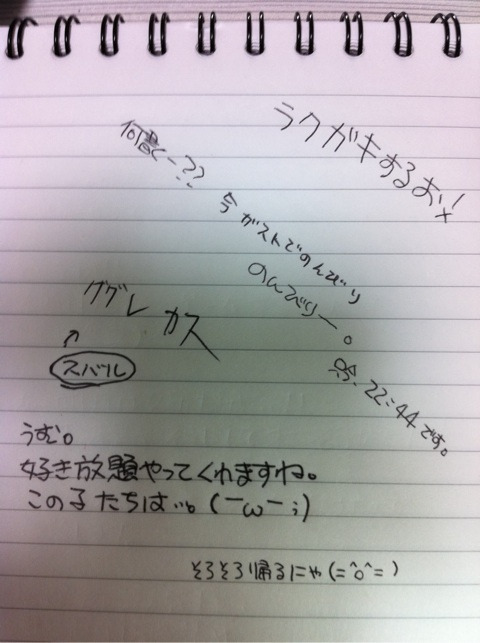 ラクガキするお!
何書く-??
今ガストでのんびり
のんびりー。
22:44です。
ググレ カス
↑
スバル
うむ。
好き放題やってくれますね。
この子たちは…。(￣ω￣;)
そろそろ帰るにゃ(=^o^=)